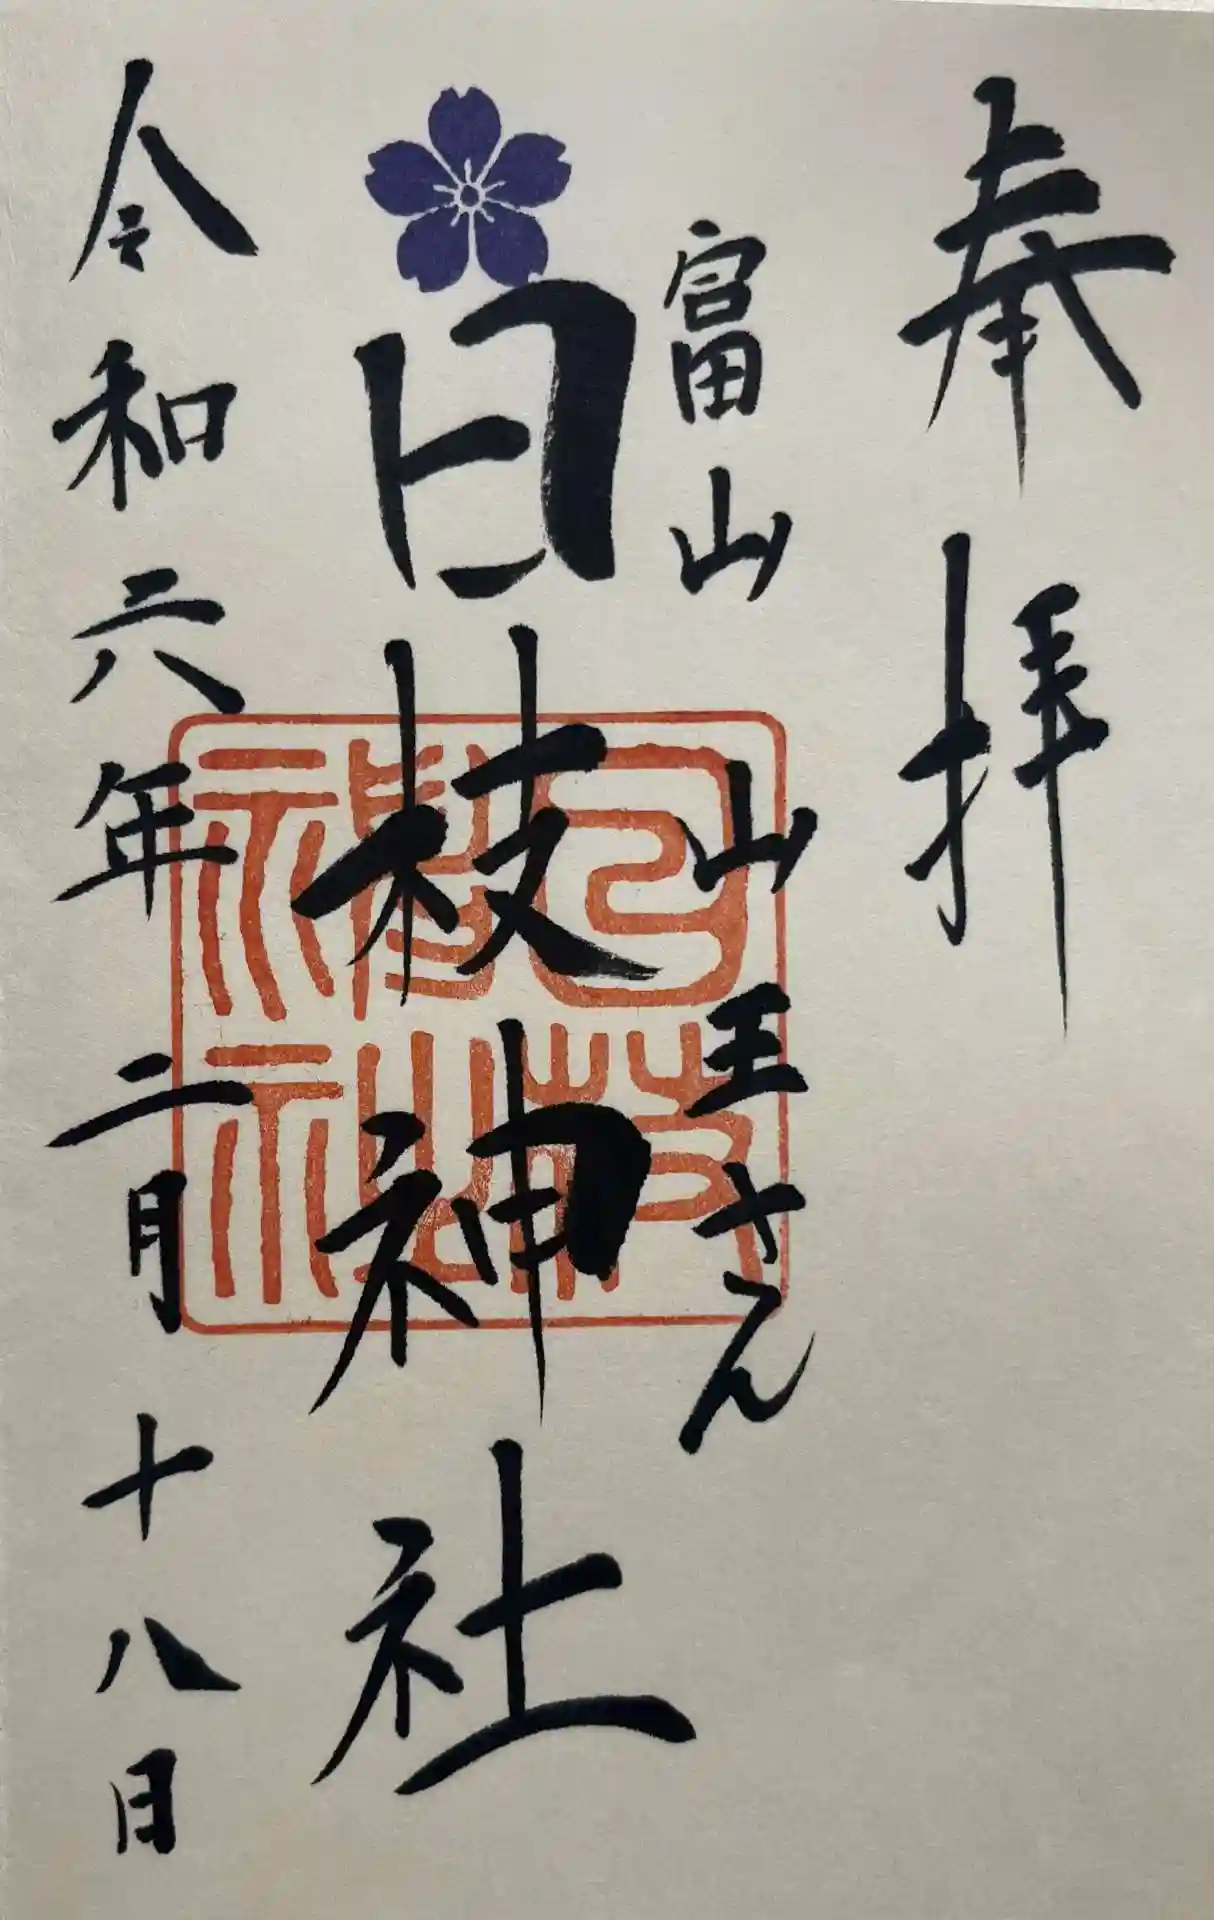 奉拝
富山 山王さん
日枝神社
日枝神社
令和六年二月十八日